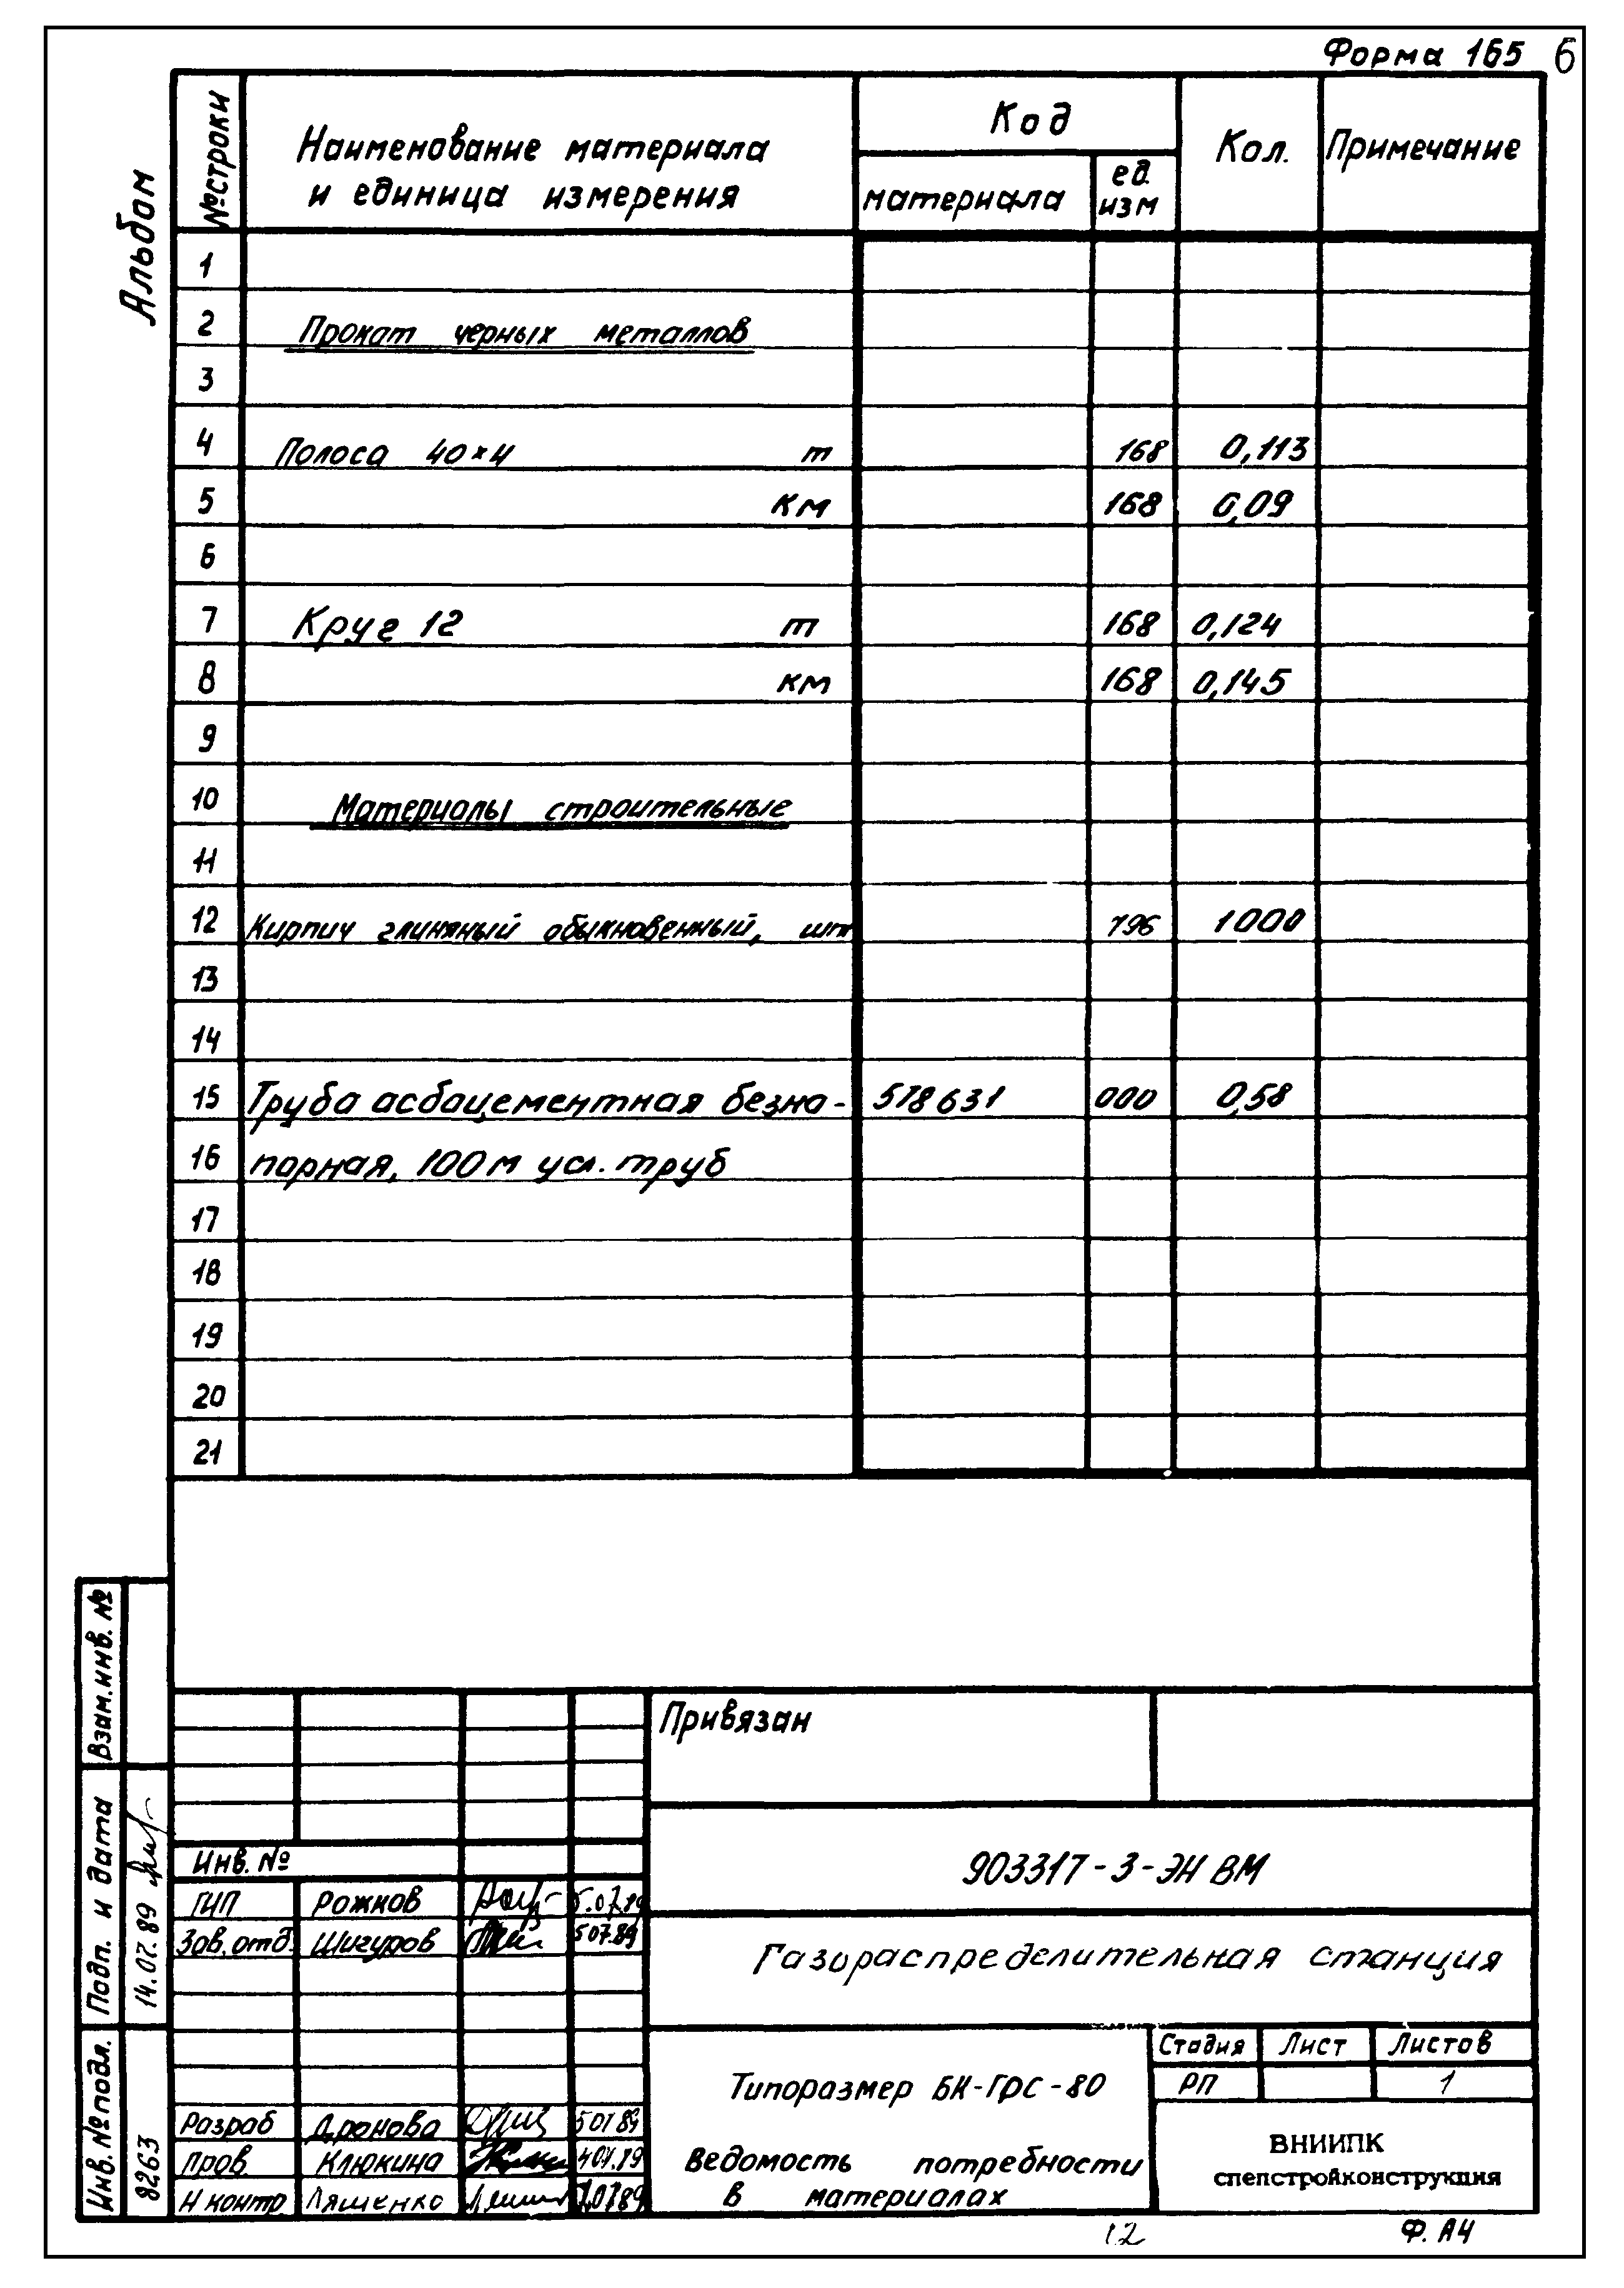 Форма 165 6
Альбом
№ строки Наименование материала и единица измерения Код Кол. Примечание
материала ед. изм
1
2 Прокат черных металлов
3
4 Полоса 40×4 т 168 0,113
5 км 168 0,09
6
7 Круг 12 т 168 0,124
8 км 168 0,145
9
10 Материалы строительные
11
12 Кирпич глиняный обыкновенный, шт 796 1000
13
14
15 Труба асбоцементная безна- 578631 000 0,58
16 порная, 100 м усл. труб
17
18
19
20
21
Взам. инв. №
Подп. и дата
14.07.89
Инв. № подл.
8263
Привязан
Инв. №
903317-3-ЭН ВМ
ГИП Рожков 5.07.89
Зав. отд. Шигуров 5 07.89
Газораспределительная станция
Типоразмер БК-ГРС-80
Стадия Лист Листов
РП 1
Разраб Дронова
Пров. Клюкина
Н контр Ляшенко
Ведомость потребности
в материалах
ВНИИПК
спепстройконструкция
12
Ф. А4